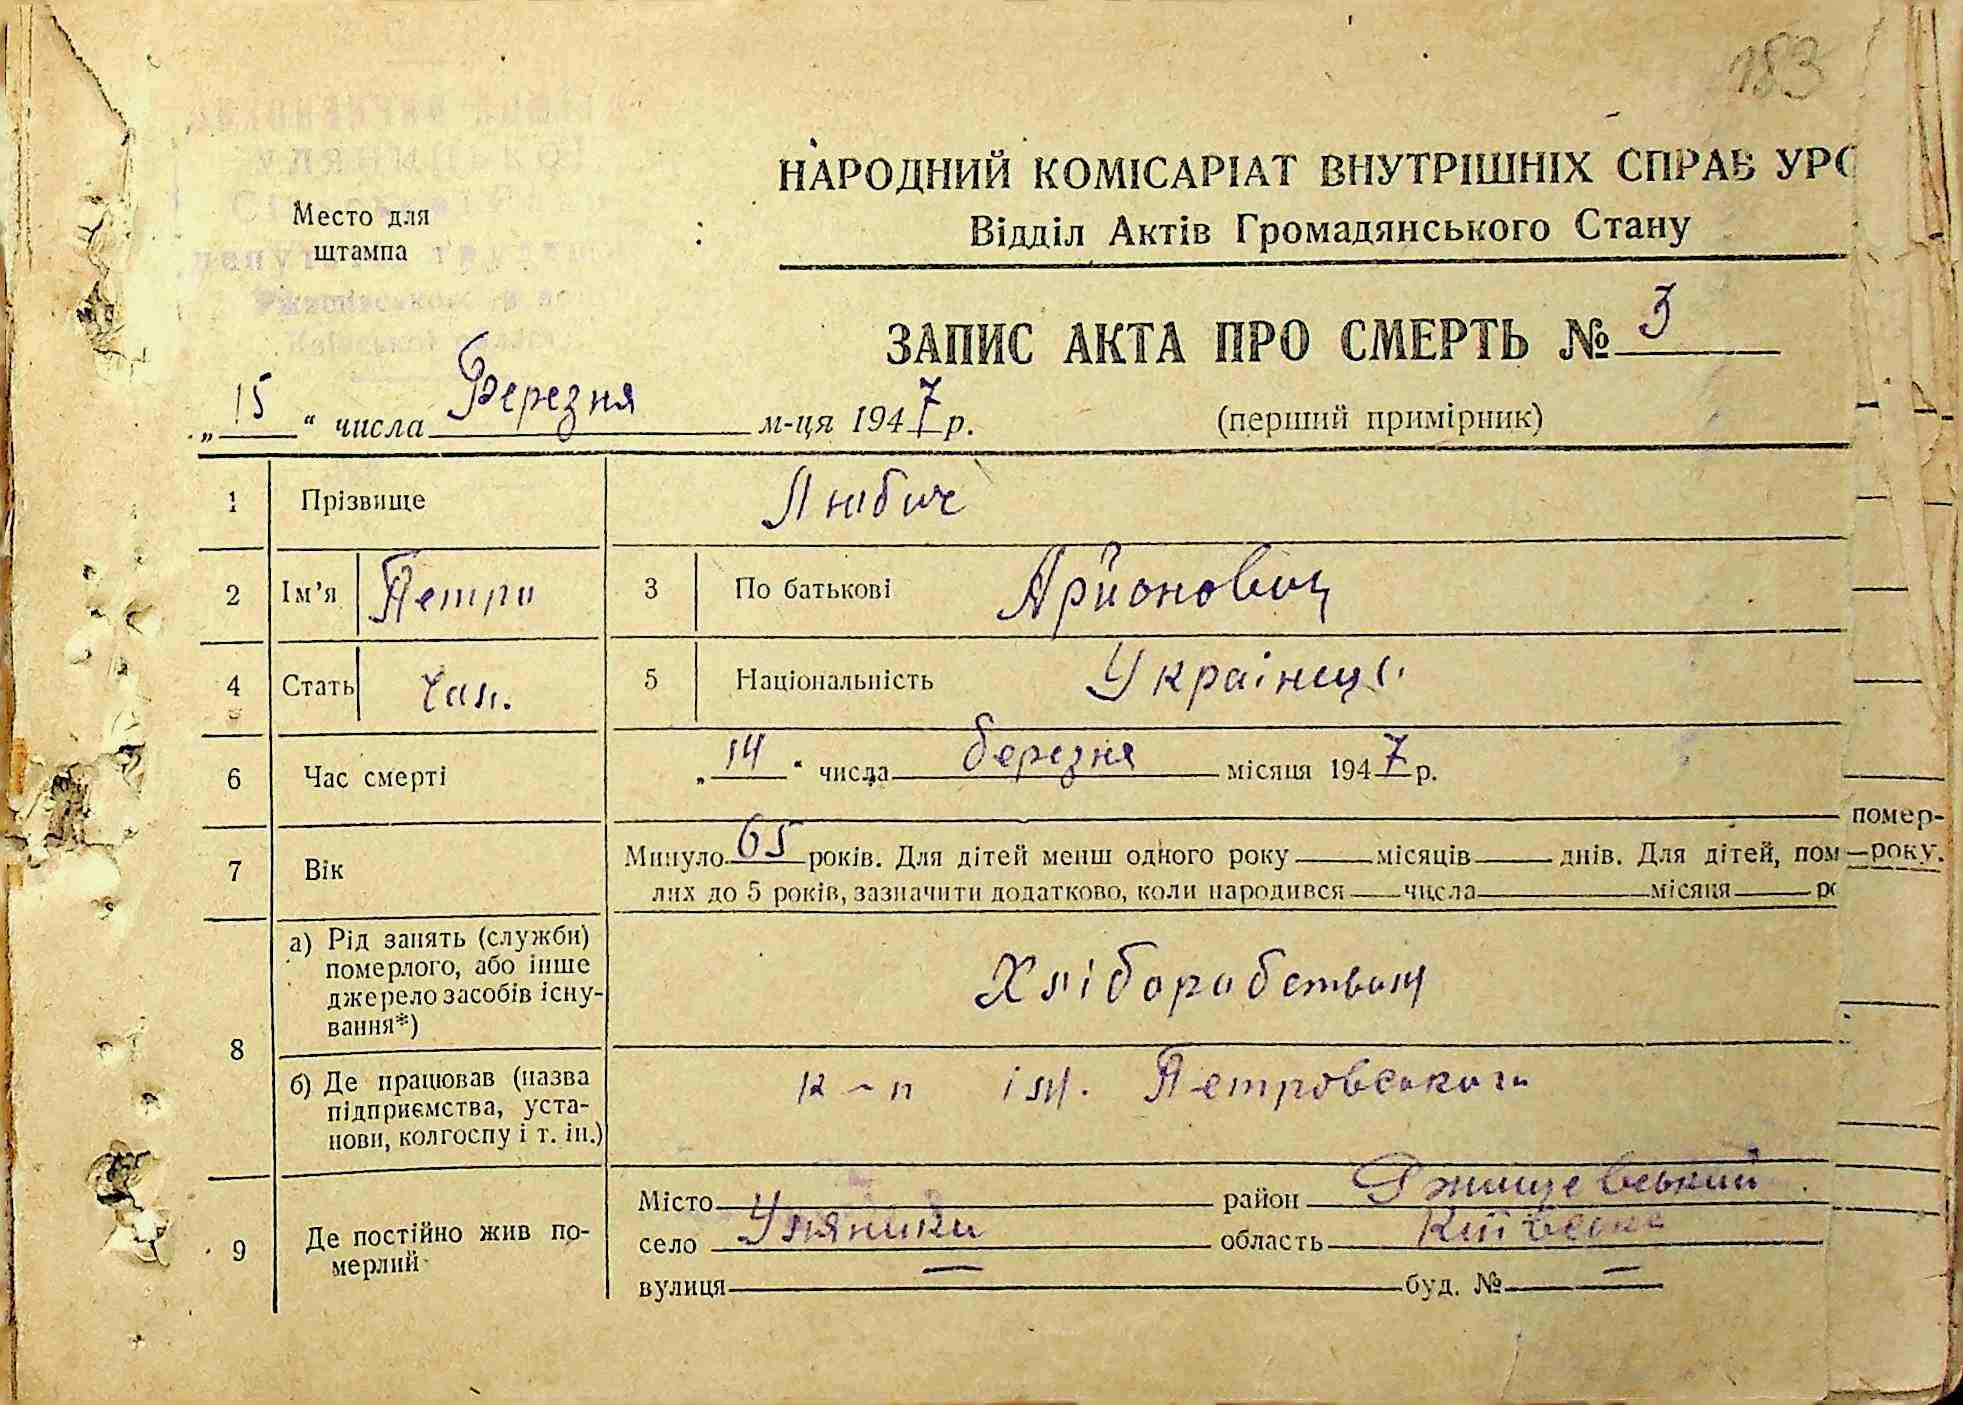 183
НАРОДНИЙ КОМІСАРІАТ ВНУТРІШНІХ СПРАВ УРС
Відділ Актів Громадянського Стану
Место для
штампа
ЗАПИС АКТА ПРО СМЕРТЬ № 3
„15“ числа Березня м-ця 1947 р. (перший примірник)
1 Прізвище Любич
2 Ім'я Петро 3 По батькові Арионович
4 Стать чол. 5 Національність Українець
6 Час смерті „14“ числа березня місяця 1947 р.
помер-
7 Вік Минуло 65 років. Для дітей менш одного року місяців днів. Для дітей, пом року.
лих до 5 років, зазначити додатково, коли народився числа місяця ро
8 а) Рід занять (служби)
померлого, або інше
джерело засобів існу-
вання*)
Хліборобством
б) Де працював (назва
підприємства, уста-
нови, колгоспу і т. ін.)
к-п ім. Петровського
9 Де постійно жив по-
мерлий
Місто район Ржищевський
село Уляники область Київська
вулиця — буд. № —